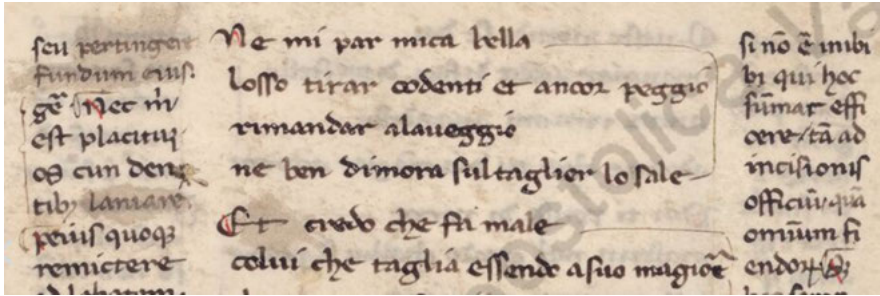 seu pertingere
fundum eius.
gē Nec m̄
est placitum
os cun den
tibꝫ laniare.
peius quoqꝫ
remictere
Ne mi par mica bella
losso tirar codenti et ancor peggio
rimandar alaveggio
ne ben dimora sul taglier lo sale
Et credo che fa male
colui che taglia essendo asuo magiore
si nō ē inibi
bi qui hoc
fūmat effi
cere / tā ad
incisionis
officiū quā
omium fi